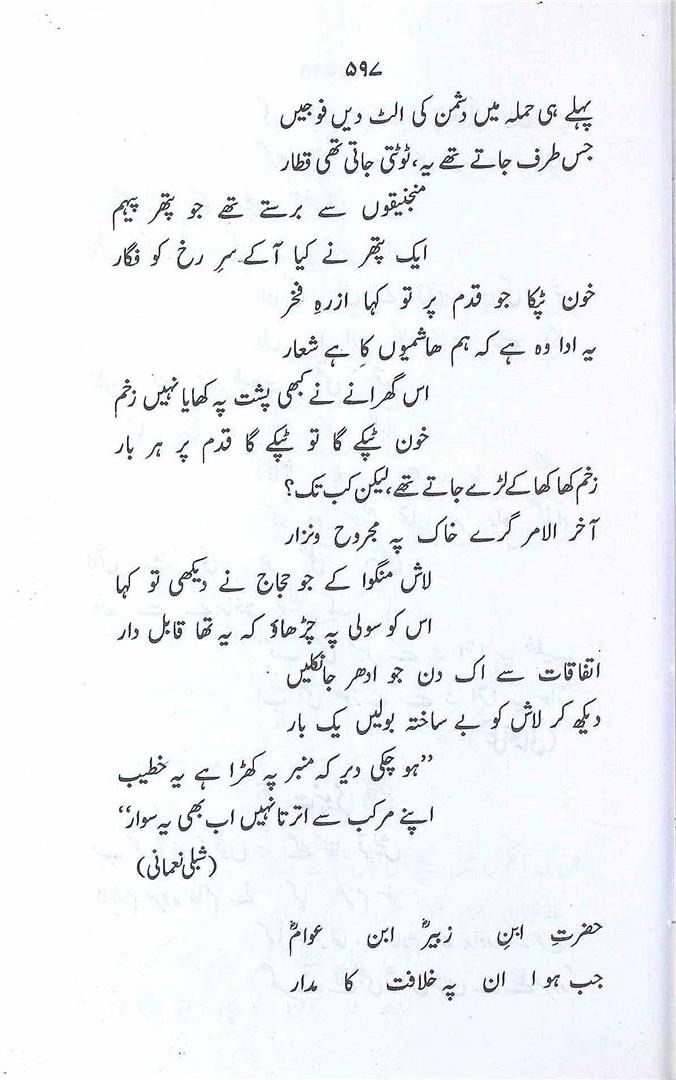 ۵۹۷
پہلے ہی حملہ میں دشمن کی الٹ دیں فوجیں
جس طرف جاتے تھے یہ، ٹوٹتی جاتی تھی قطار
منجنیقوں سے برستے تھے جو پتھر پیہم
ایک پتھر نے کیا آکے سرِ رخ کو فگار
خون ٹپکا جو قدم پر تو کہا ازرہِ فخر
یہ ادا وہ ہے کہ ہم ھاشمیوں کا ہے شعار
اس گھرانے نے کبھی پشت پہ کھایا نہیں زخم
خون ٹپکے گا تو ٹپکے گا قدم پر ہر بار
زخم کھا کھا کے لڑے جاتے تھے، لیکن کب تک؟
آخر الامر گرے خاک پہ مجروح ونزار
لاش منگوا کے جو حجاج نے دیکھی تو کہا
اس کو سولی پہ چڑھاؤ کہ یہ تھا قابل دار
اتفاقات سے اک دن جو ادھر جانکلیں
دیکھ کر لاش کو بے ساختہ بولیں یک بار
”ہو چکی دیر کہ منبر پہ کھڑا ہے یہ خطیب
اپنے مرکب سے اترتا نہیں اب بھی یہ سوار“
(شبلی نعمانی)
حضرتِ ابنِ زبیرؓ ابن عوامؓ
جب ہوا ان پہ خلافت کا مدار